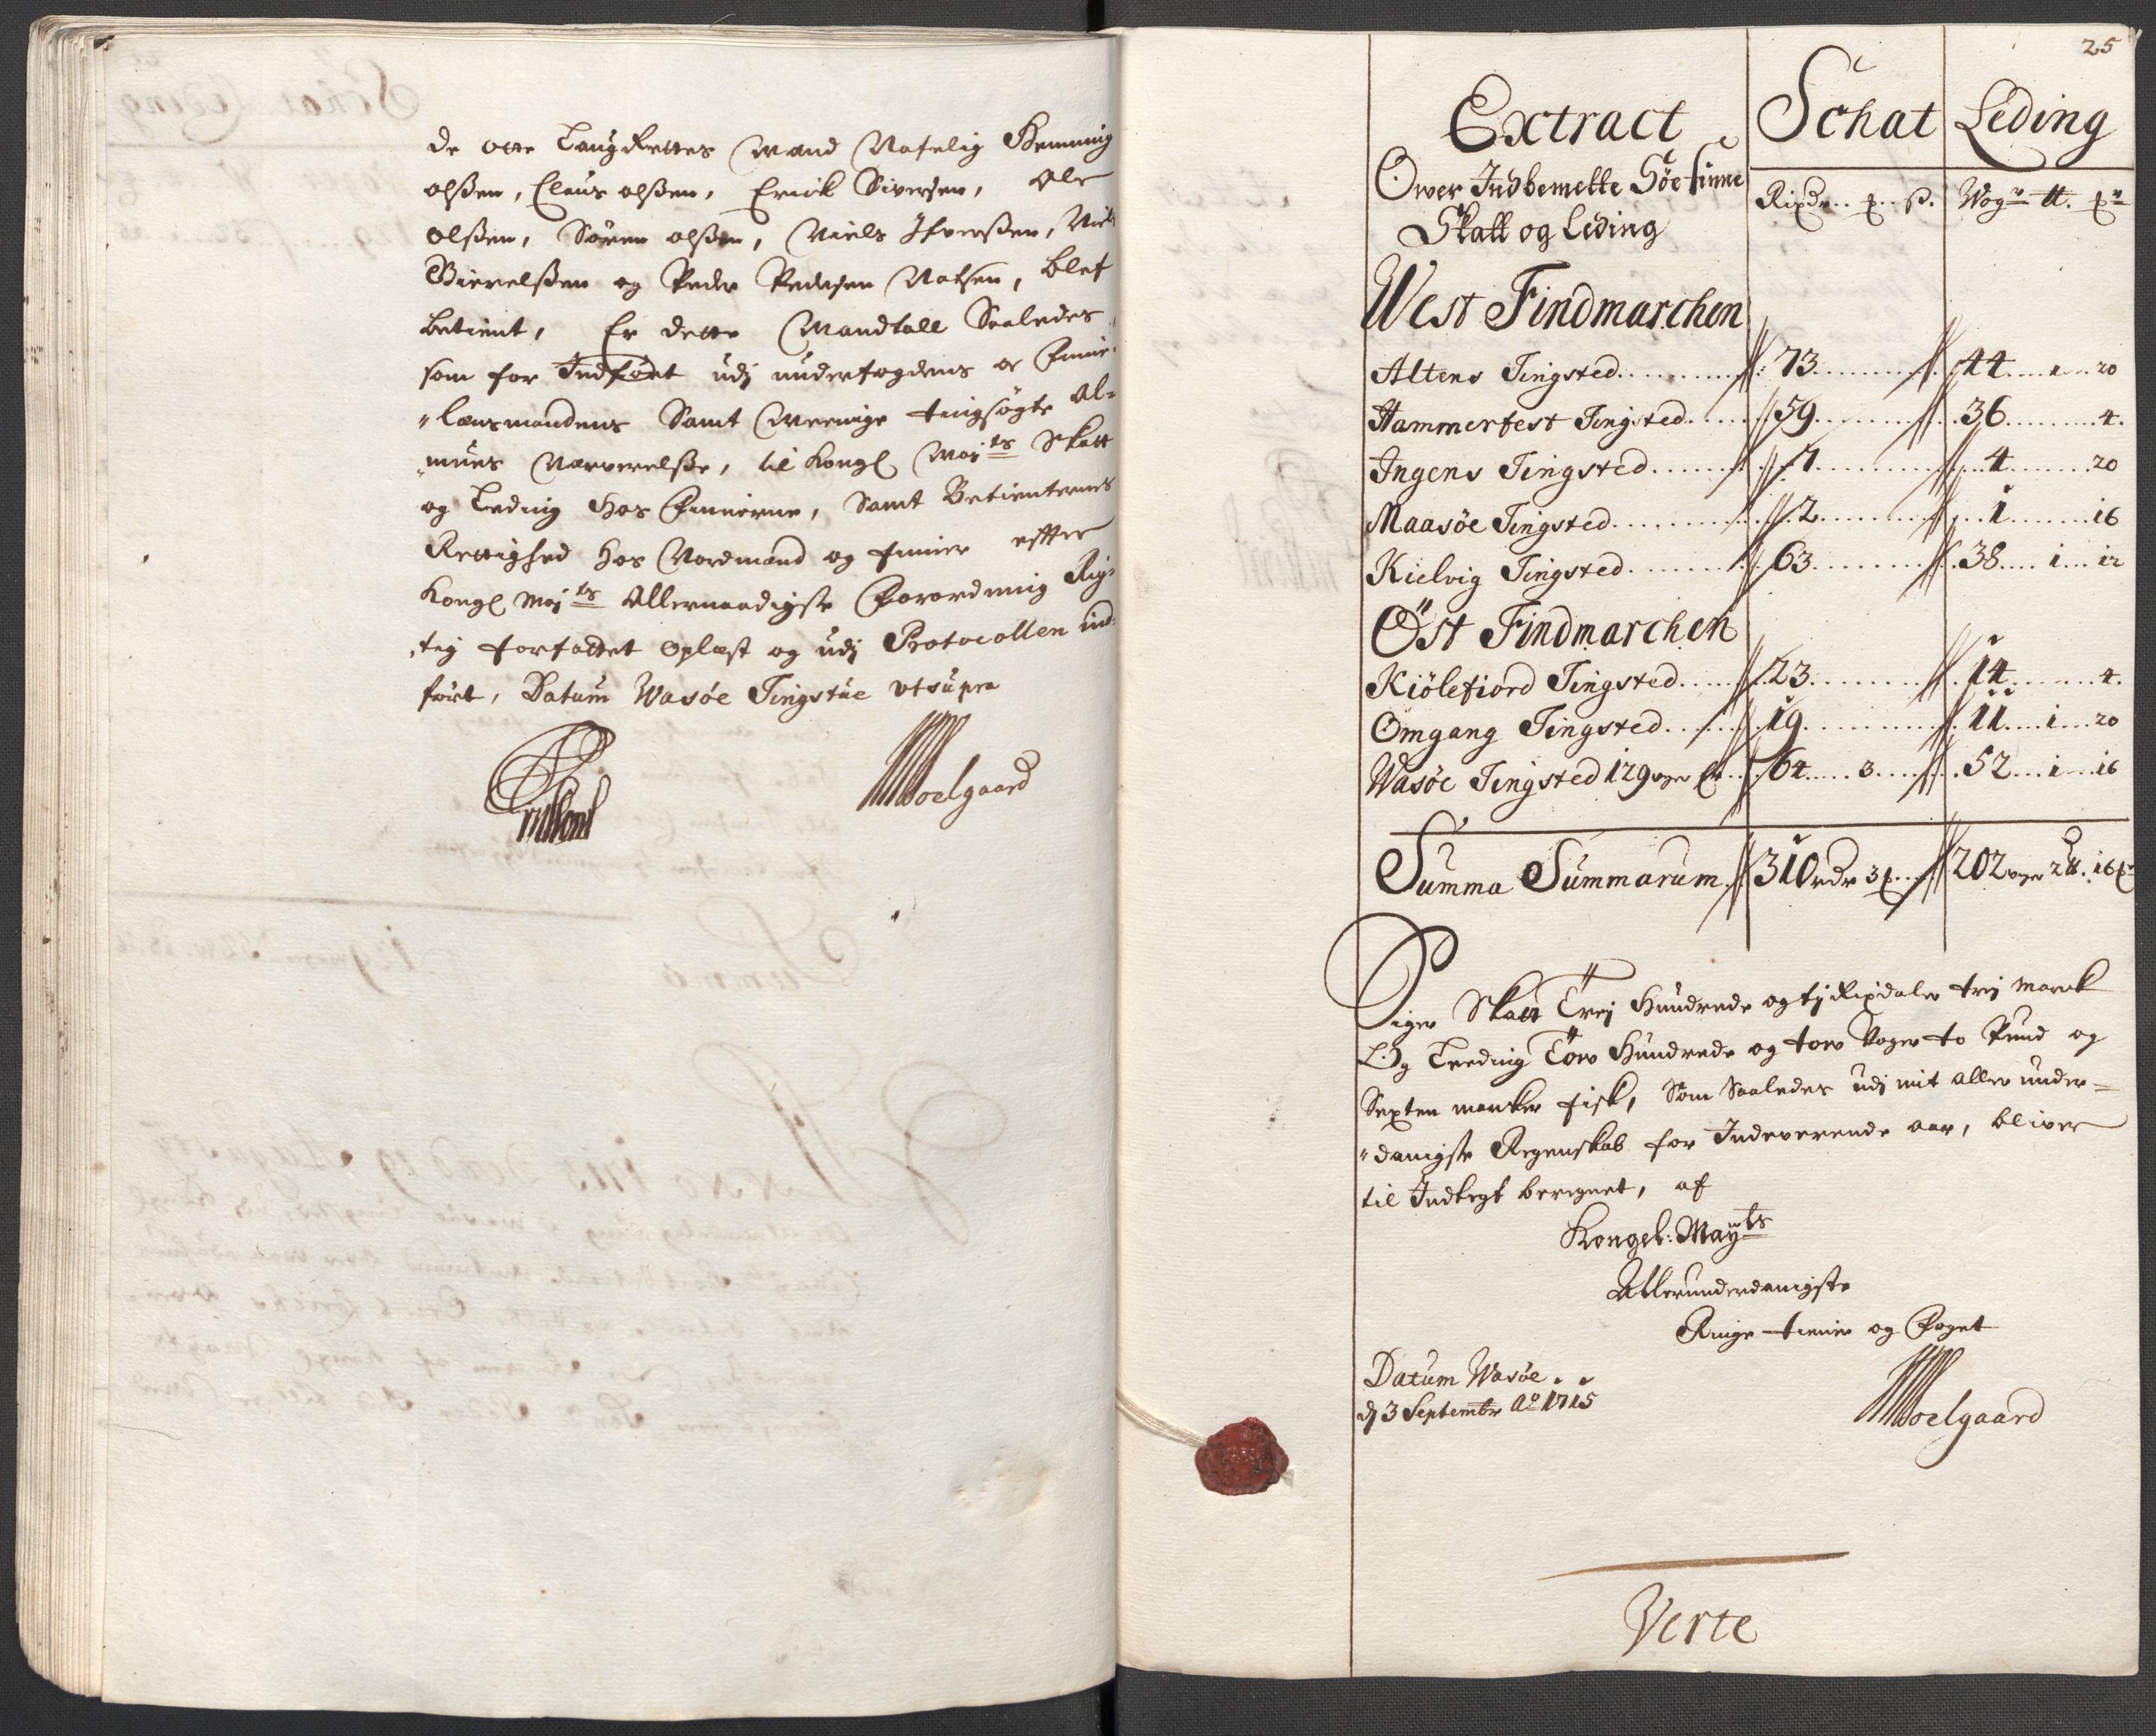 de otte Laug Rettes Mænd Nafnlig Hemming
olßen, Claus olßen, Erick Siversen, Ole
olßen, Søren olßen, Niels Ifverßen, Niels
og Peder Pedersen Matsen, blef
betient, Er dette Mandtall Saaledes
som for Indført udj underfogdens oc Finne-
"lænsmandens Samt Meenige tingsøgte Al=
"mues Nærverelße, til Kongl Mayts Skatt
og Leding Hos Finnerne, Samt Betienternes
Rettighed hos Nordmænd og finner efter
Kongl May ts Allernaadigste Forordning Rig=
tig forfattet oplæst og udj Protocollen ind=
ført, Datum Wasöe Tingstue ut supra
Noelgaard
25
Extract
Schat
Leding
Ower Indbemelte Söe finne
Skatt og Leding
Rixdr.. ..ß. Wogr ℔.
West Findmarchen
Altens Tingsted 73 44 1 20
Hammerfest Tingsted 59 36 4.
Ingens Tingsted 7 4 20
Maasöe Tingsted 2 1 16
Kielvig Tingsted 63 38 1 12
Öst Findmarchen
Kiölefiord Tingsted 23 14 4.
Omgang Tingsted 19 11 1 20
Wasöe Tingsted 129 64 3 52 1 16
Summa Summarum 310 rdr 3 202 2℔. 16
Siger Skatt Trej Hundrede og tj Rixdaler trej Marck
Og Leeding Tow Hundrede og tow Woger to Pund og
Sexten marker fisk, Som Saaledes udj mit aller under=
"danigste Regenskab for Indeverende aar, bliver
til Indtegt beregnet, af
Kongel: Mayts
Allerunderdanigste
Ringe tiener og Foget
Datum Wasöe
dj 3 Septembr Ao 1715
Noelgaard
Verte